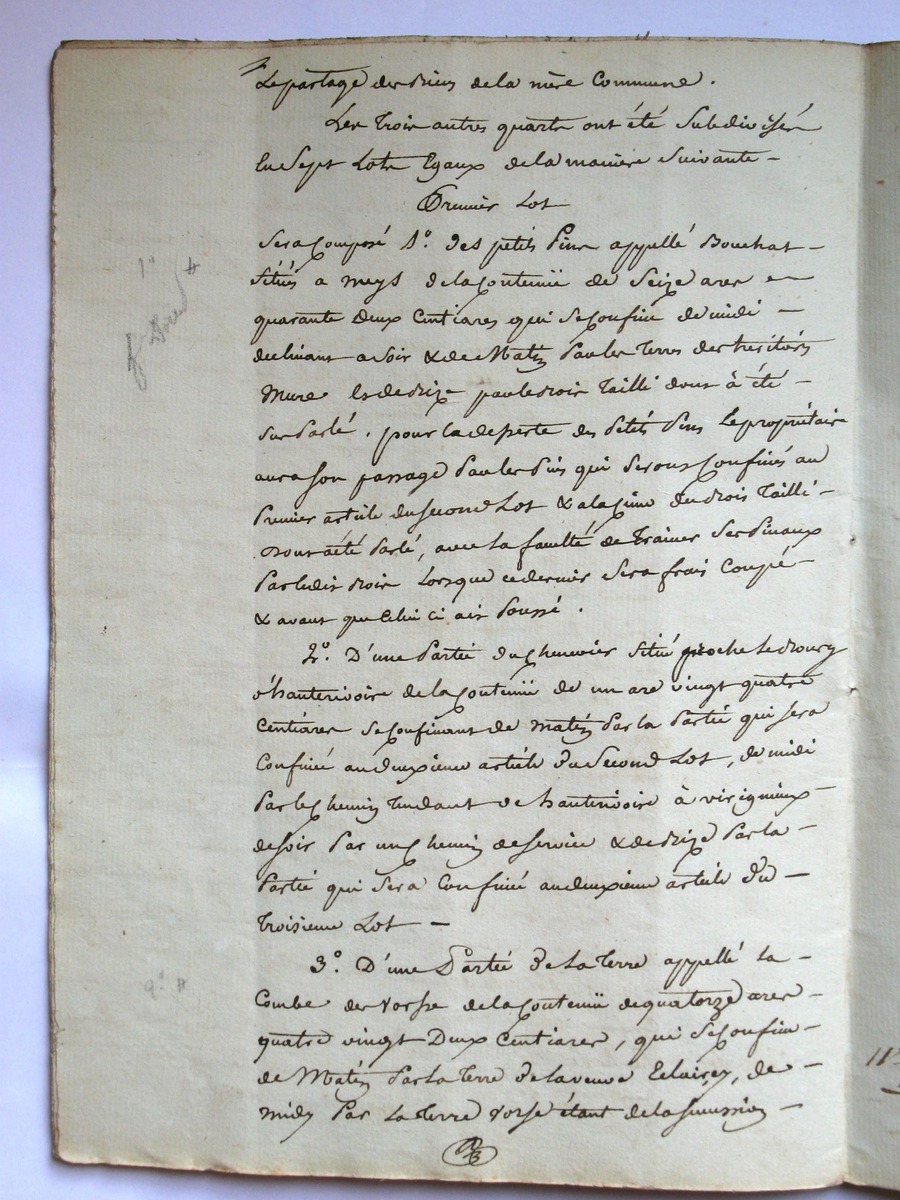 Le partage des biens de la mère Commune.
Les trois autres quarts ont été Subdivisés
En Sept Lots Egaux de la maniere Suivante -
Premier Lot
Sera Composé 1º. des petits Pins appellé Bouchat -
Situés a meys de la Contenüe de Seize ares -
quarante deux Centiares qui se Confine de midi -
declinant a soir & de Matin Par les Terres des heritiers
Mure Et de bize par le bois Taillé dont à été -
Sus Parlé. pour la desserte des Petits Pins Le propriétaire
aura son passage Par les Pins qui seront Confinés au
Premier article du second Lot & a la Cime du bois Taillé -
dont a été Parlé, avec la faculté de Trainer Ses Pinaux
Par ledit bois Lorsque ce dernier Sera frais Coupé -
& avant que Celui ci ait Poussé.
2º. D'une Partie du Chenevier Situé proche Le Bourg
d'hauterivoire de la Contenüe de un are vingt quatre
Centiares se Confinant de matin Par la Partie qui sera
Confinée au deuxieme article du Second Lot, de midi
Par le Chemin Tendant de hauterivoire à virigneux -
de soir Par un Chemin de service & de bize Par la -
Partie qui Sera Confinée au deuxieme article du -
Troisieme Lot -
3º. D'une Partie de La Terre appellé La -
Combe des Vorse de la Contenüe de quatorze ares -
quatre vingt Deux Centiares, qui se Confine -
de Matin Par La Terre de la veuve Eclairey, de -
midy Par La Terre Vorse étant de la succession -
1º #
9º #